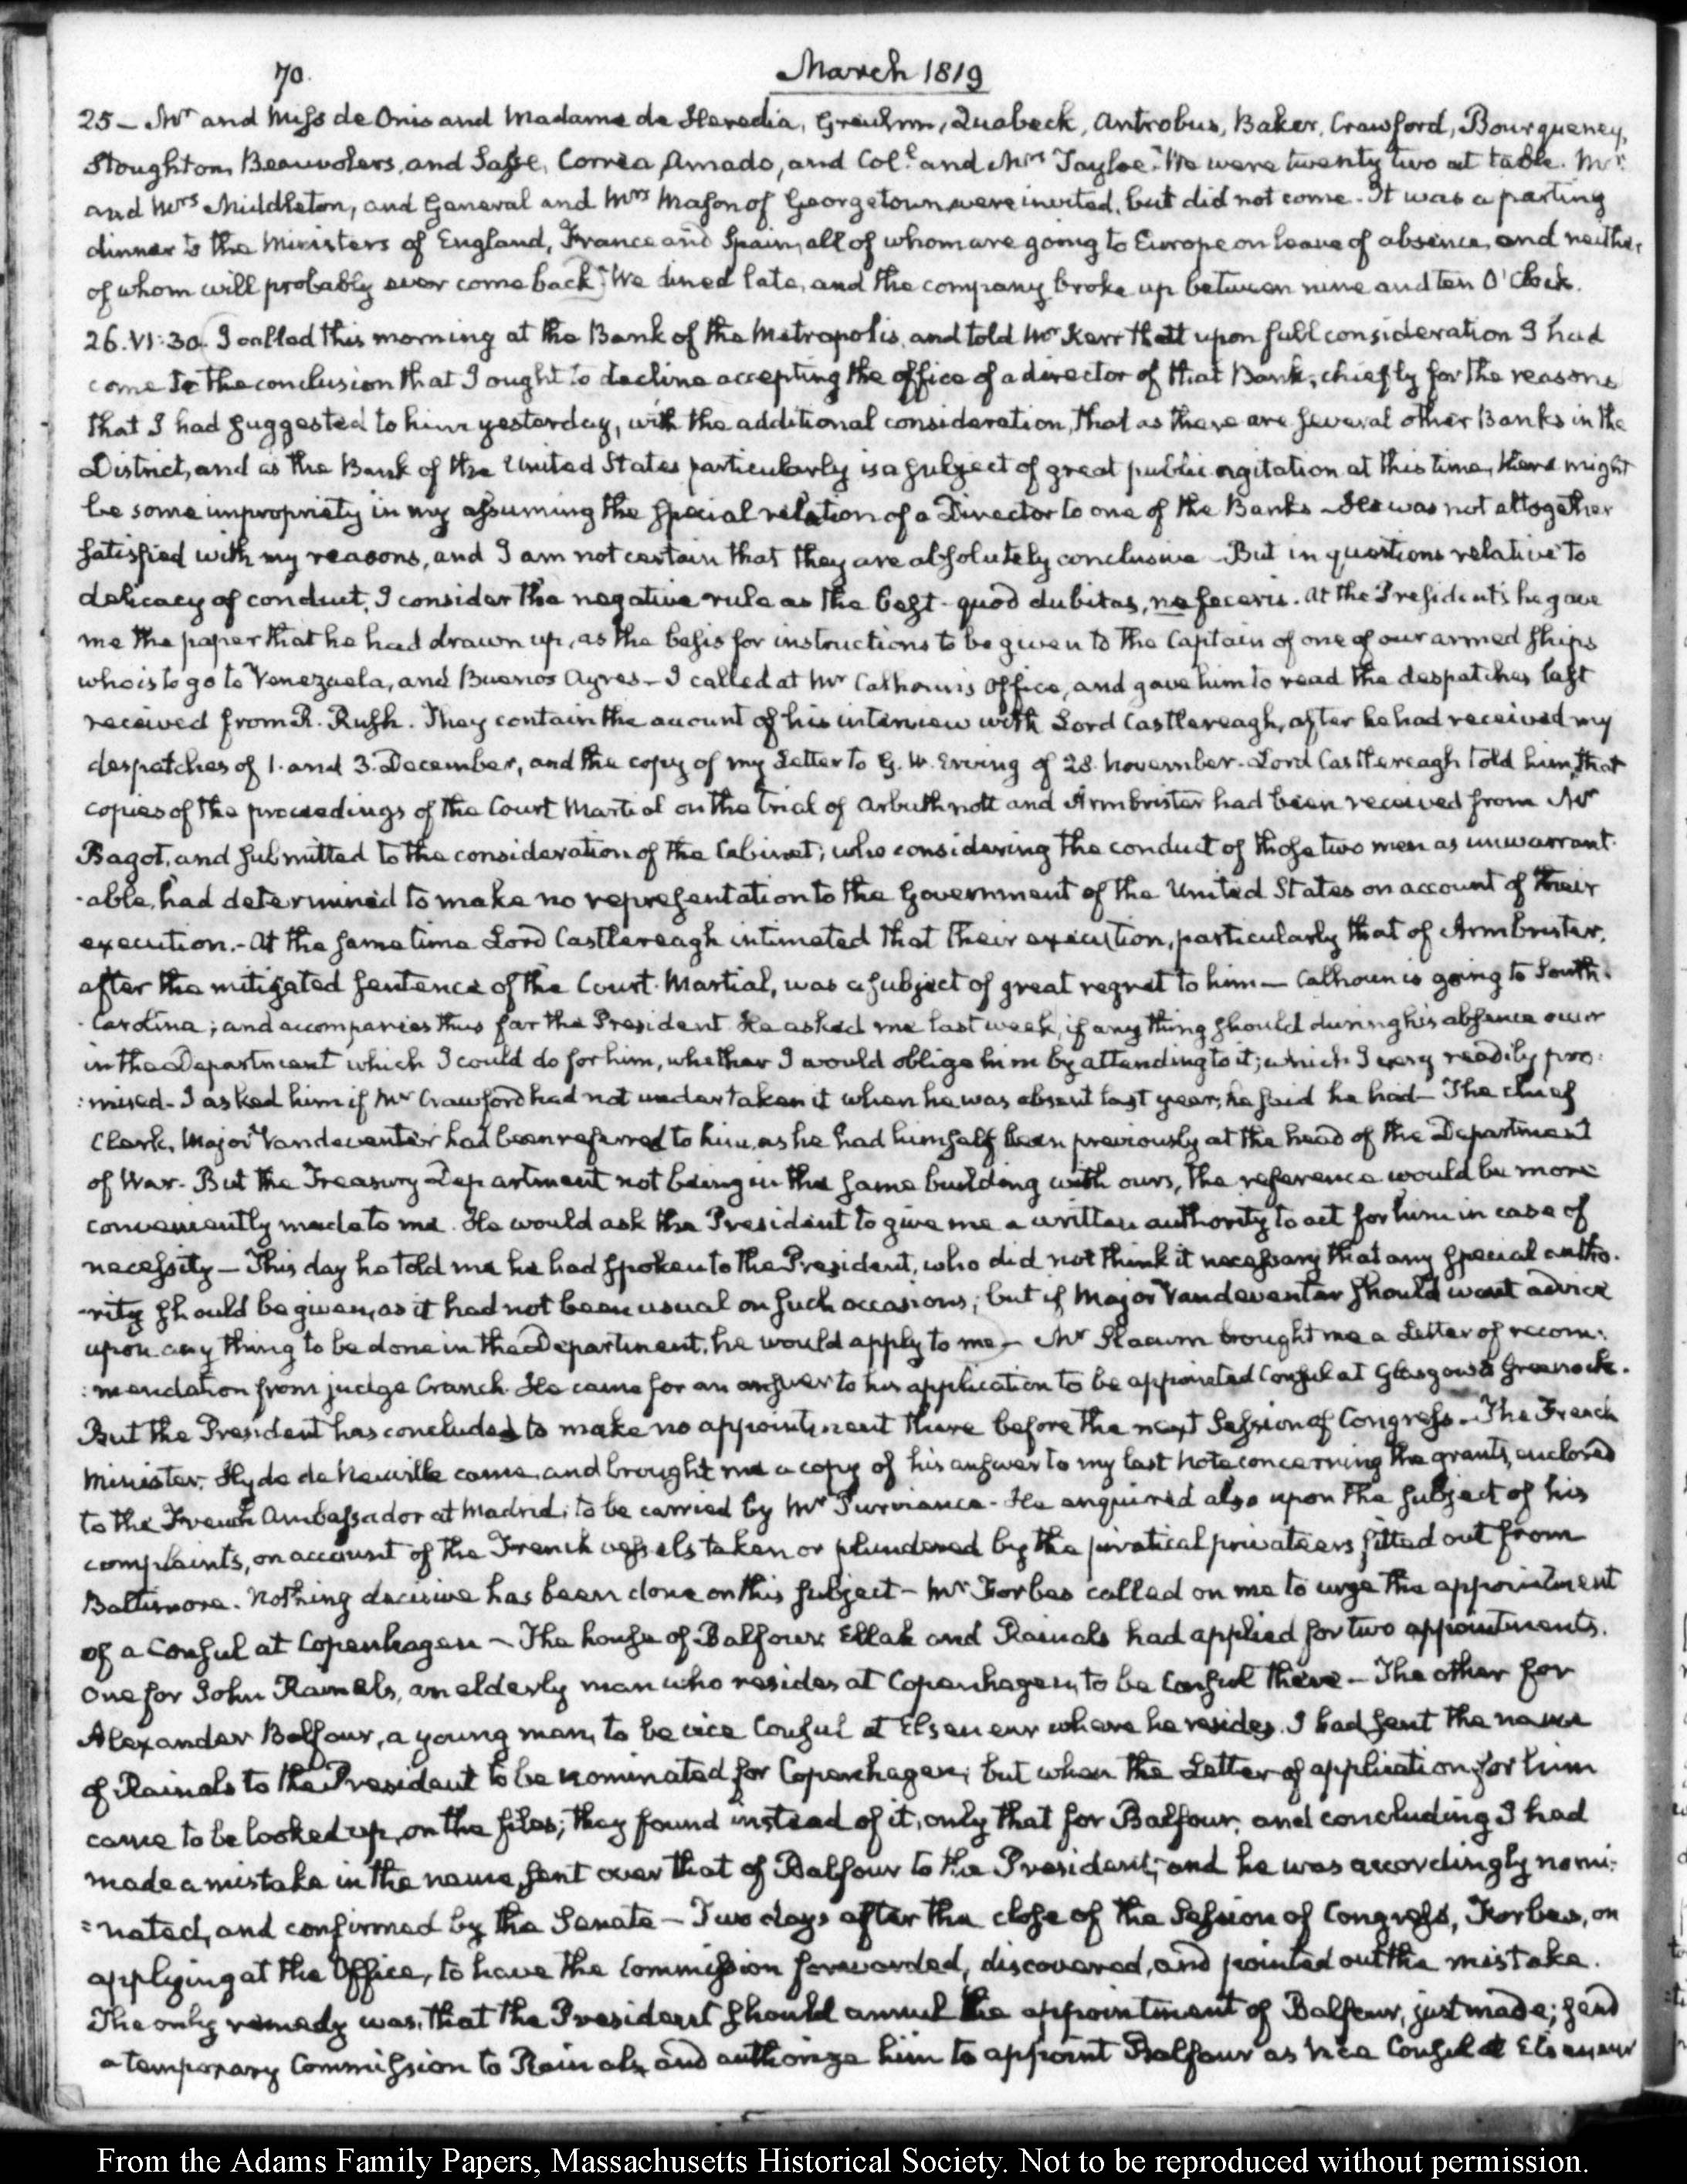 70.
March 1819
25 — Mr and Miss de Onis and Madame de Heredia, Greuhm, Quabeck, Antrobus, Baker, Crawford, Bourqueney,
Stoughton, Beauvolers, and Correa, Amado, and Coll. and Mrs Tayloe. We were twenty two at table. Mr.
and Mrs Middleton, and General and Mrs Mason of Georgetown were invited, but did not come. It was a parting
dinner to the Ministers of England, France and Spain, all of whom are going to Europe on leave of absence, and neither
of whom will probably ever come back. We dined late, and the company broke up between nine and ten O'Clock.
26. VI:30. I called this morning at the Bank of the Metropolis, and told Mr Kerr that upon full consideration I had
come to the conclusion that I ought to decline accepting the office of a director of that Bank; chiefly for the reasons
that I had suggested to him yesterday, with the additional consideration, that as there are several other Banks in the
District, and as the Bank of the United States particularly is a subject of great public agitation at this time, there might
be some impropriety in my assuming the special relation of a Director to one of the Banks — He was not altogether
satisfied with my reasons, and I am not certain that they are absolutely conclusive — But in questions relative to
delicacy of conduct, I consider the negative rule as the best — quod dubitas, ne feceris. At the President's he gave
me the paper that he had drawn up, as the basis for instructions to be given to the Captain of one of our armed ships
who is to go to Venezuela, and Buenos Ayres — I called at Mr Calhoun's Office, and gave him to read the despatches last
received from R. Rush. They contain the account of his interview with Lord Castlereagh, after he had received my
despatches of 1. and 3. December, and the copy of my Letter to G. W. Erving of 28. November. Lord Castlereagh told him, that
copies of the proceedings of the Court Martial on the trial of Arbuthnott and Armbrister had been received from Mr
Bagot, and submitted to the consideration of the Cabinet; who considering the conduct of those two men as unwarrant-
-able, had determined to make no representation to the Government of the United States on account of their
execution. — At the same time Lord Castlereagh intimated that their execution, particularly that of Armbrister,
after the mitigated sentence of the Court Martial, was a subject of great regret to him — Calhoun is going to South-
-Carolina; and accompanies thus far the President. He asked me last week, if any thing should during his absence occur
in the Department which I could do for him, whether I would oblige him by attending to it; which I very readily pro:
:mised — I asked him if Mr Crawford had not undertaken it when he was absent last year; he said he had — The chief
Clerk, Major Vandeventer had been referred to him, as he had himself been previously at the head of the Department
of War. But the Treasury Department not being in the same building with ours, the reference would be more
conveniently made to me. He would ask the President to give me a written authority to act for him in case of
necessity — This day he told me he had spoken to the President, who did not think it necessary that any special autho-
-rity should be given, as it had not been usual on such occasions; but if Major Vandeventer should want advice
upon any thing to be done in the Department, he would apply to me — Mr Slacum brought me a Letter of recom:
:mendation from judge Cranch. He came for an answer to his application to be appointed Consul at Glasgow & Greenock.
But the President has concluded to make no appointment there before the next Session of Congress — The French
Minister, Hyde de Neuville came, and brought me a copy of his answer to my last Note concerning the grants, enclosed
to the French Ambassador at Madrid; to be carried by Mr Purviance. He enquired also upon the subject of his
complaints, on account of the French vessels taken or plundered by the piratical privateers fitted out from
Baltimore. Nothing decisive has been done on this subject — Mr Forbes called on me to urge the appointment
of a Consul at Copenhagen — The house of Balfour, Ellah and Rainals had applied for two appointments.
One for John Rainals, an elderly man who resides at Copenhagen, to be Consul there — The other for
Alexander Balfour, a young man, to be vice Consul at Elseneur where he resides. I had sent the name
of Rainals to the President to be nominated for Copenhagen; but when the Letter of application for him
came to be looked up, on the files; they found instead of it, only that for Balfour, and concluding I had
made a mistake in the name, sent over that of Balfour to the President; and he was accordingly nomi:
=nated, and confirmed by the Senate — Two days after the close of the Session of Congress, Forbes, on
applying at the Office, to have the Commission forwarded, discovered, and pointed out the mistake.
The only remedy was, that the President should annul the appointment of Balfour, just made; send
a temporary Commission to Rainals, and authorize him to appoint Balfour as Vice Consul at Elseneur
From the Adams Family Papers, Massachusetts Historical Society. Not to be reproduced without permission.